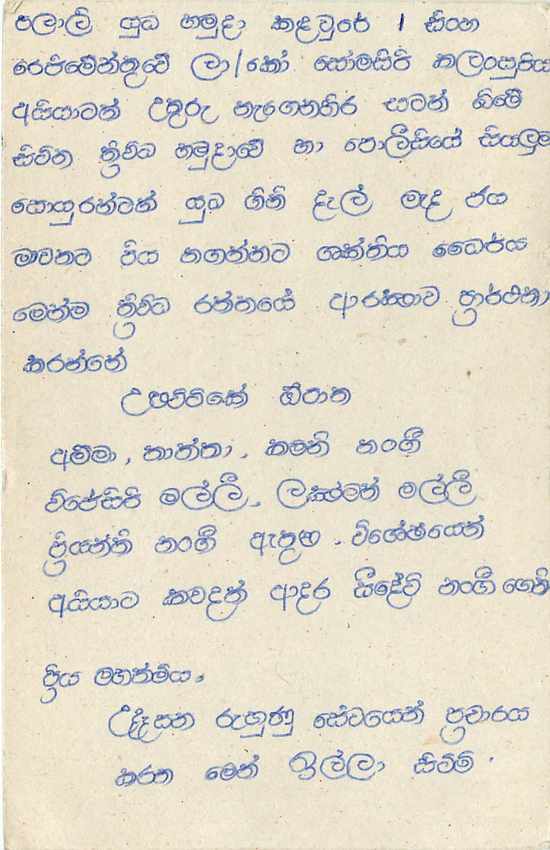 පලාලි යුධ හමුදා කඳවුරේ 1 සිංහ
රෙජිමේන්තුවේ ලා/කෝ සෝමසිරි කලංසූරිය
අයියාටත් උතුරු නැගෙනහිර සටන් බිමේ
සිටින ත්‍රිවිධ හමුදාවේ හා පොලීසියේ සියලුම
සොයුරන්ටත් යුධ ගිනි දැල් මැද ජය
මාවතට පිය නගන්නට ශක්තිය ධෛර්ය
මෙන්ම ත්‍රිවිධ රත්නයේ ආරක්ෂාව ප්‍රාර්ථනා
කරන්නේ
උපුට්ටකේ ඕපාත
අම්මා, තාත්තා, කමනි නංගී
විජේසිරි මල්ලී, ලක්ෂ්මන් මල්ලී
ප්‍රියන්ති නංගී ඇතුළු . විශේෂයෙන්
අයියාට කවදත් ආදර ශ්‍රීදේවි නංගී ගෙනි
ප්‍රිය මහත්මය,
උදෑසන රුහුණු සේවයෙන් ප්‍රචාරය
කරන මෙන් ඉල්ලා සිටිමි .